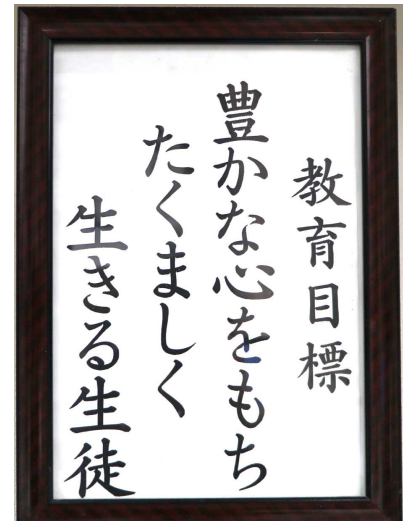 教育目標
豊かな心をもち
たくましく
生きる生徒